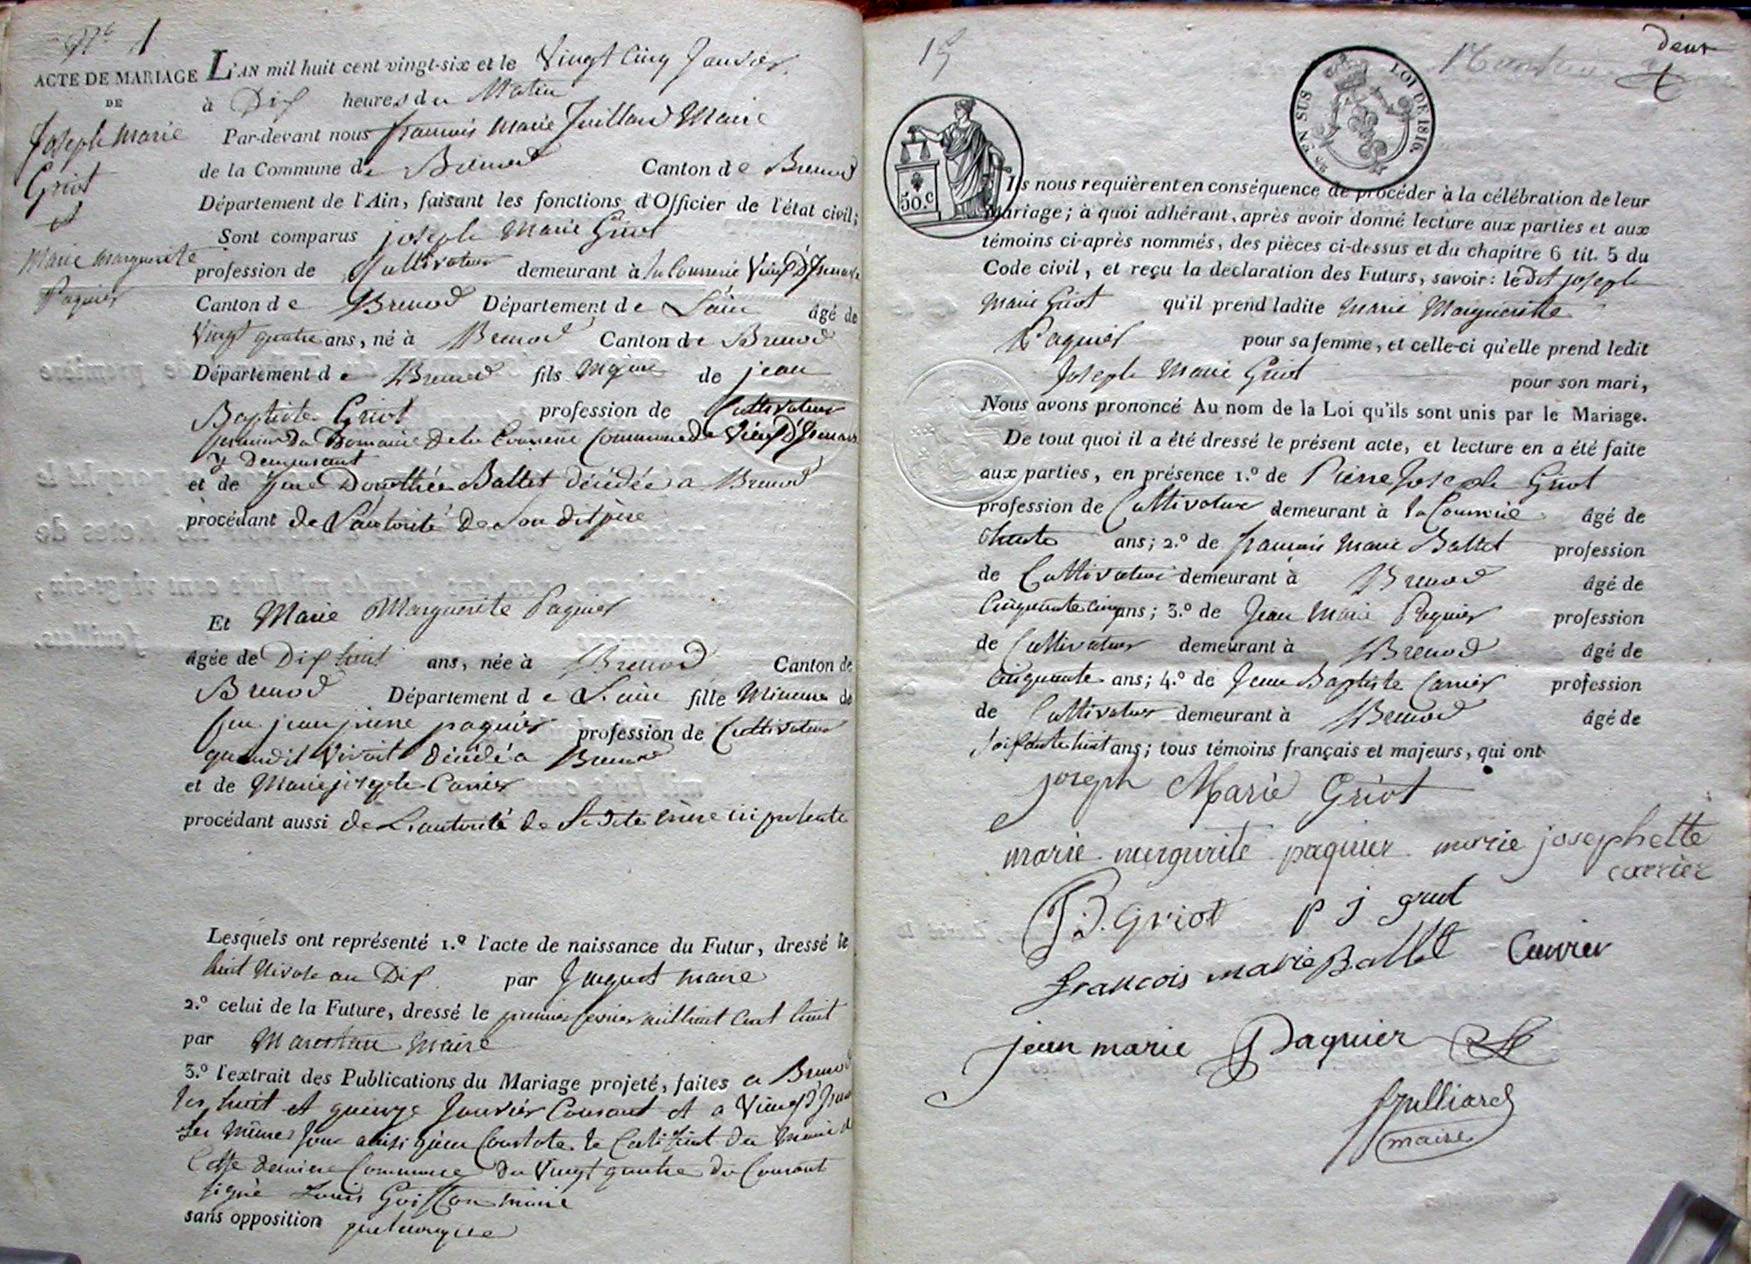 N° 1
ACTE DE MARIAGE
DE
Joseph Marie
Griot
et
Marie Marguerite
Paquier
L'AN mil huit cent vingt-six et le Vingt Cinq Janvier
à Dix heures du Matin
Par-devant nous françois Marie Juillard Maire
de la Commune de Brenod Canton de Brenod
Département de l'Ain, faisant les fonctions d'Officier de l'état civil;
Sont comparus joseph Marie Griot
profession de Cultivateur demeurant à la Couverie Vieux D'Izenave
Canton de Brenod Département de L'ain âgé de
Vingt quatre ans, né à Brenod Canton de Brenod
Département de Brenod fils Majeur de jean
Baptiste Griot profession de Cultivateur
fermier du Domaine de la Couverie Commune de Vieux D'Izenave
y demeurant
et de feue Dorothée Ballet décédée a Brenod
procédant de L'autorité de Son dit père
Et Marie Marguerite Paquier
âgée de Dix huit ans, née à Brenod Canton de
Brenod Département de L'ain fille Mineure de
feu jean pierre paquier profession de Cultivateur
quand il Vivait décédé a Brenod
et de Marie josephe Carrier
procédant aussi de L'autorité de Sa dite mère ici présente
Lesquels ont représenté 1.° l'acte de naissance du Futur, dressé le
huit Nivose an Dix par Juquet maire
2.° celui de la Future, dressé le premier fevrier mil huit Cent huit
par maire
3.° l'extrait des Publications du Mariage projeté, faites a Brenod
les huit et quinze Janvier Courant et a Vieux D'Izenave
les mêmes jour ainsi qu'en Constate le Certificat du Maire de
Cette derniere Commune du Vingt quatre du Courant
signé Louis Goiffon maire
sans opposition quelconque
15
deux
EN SUS
LOI DE 1816.
50.c
Ils nous requièrent en conséquence de procéder à la célébration de leur
Mariage; à quoi adhérant, après avoir donné lecture aux parties et aux
témoins ci-après nommés, des pièces ci-dessus et du chapitre 6 tit. 5 du
Code civil, et reçu la déclaration des Futurs, savoir: le dit joseph
Marie Griot qu'il prend ladite Marie Marguerite
Paquier pour sa femme, et celle-ci qu'elle prend ledit
Joseph Marie Griot pour son mari,
Nous avons prononcé Au nom de la Loi qu'ils sont unis par le Mariage.
De tout quoi il a été dressé le présent acte, et lecture en a été faite
aux parties, en présence 1.° de Pierre Joseph Griot
profession de Cultivateur demeurant à la Couverie âgé de
trente ans; 2.° de françois Marie Ballet profession
de Cultivateur demeurant à Brenod âgé de
Cinquante cinq ans; 3.° de Jean Marie Paquier profession
de Cultivateur demeurant à Brenod âgé de
Cinquante ans; 4.° de Jean Baptiste Carrier profession
de Cultivateur demeurant à Brenod âgé de
soixante huit ans; tous témoins français et majeurs, qui ont
joseph Marie Griot
marie mergurite paquier marie josephette
carrier
J B. Griot p j griot
francois marie Ballet Carrier
jean marie Paquier
Juilliard
maire